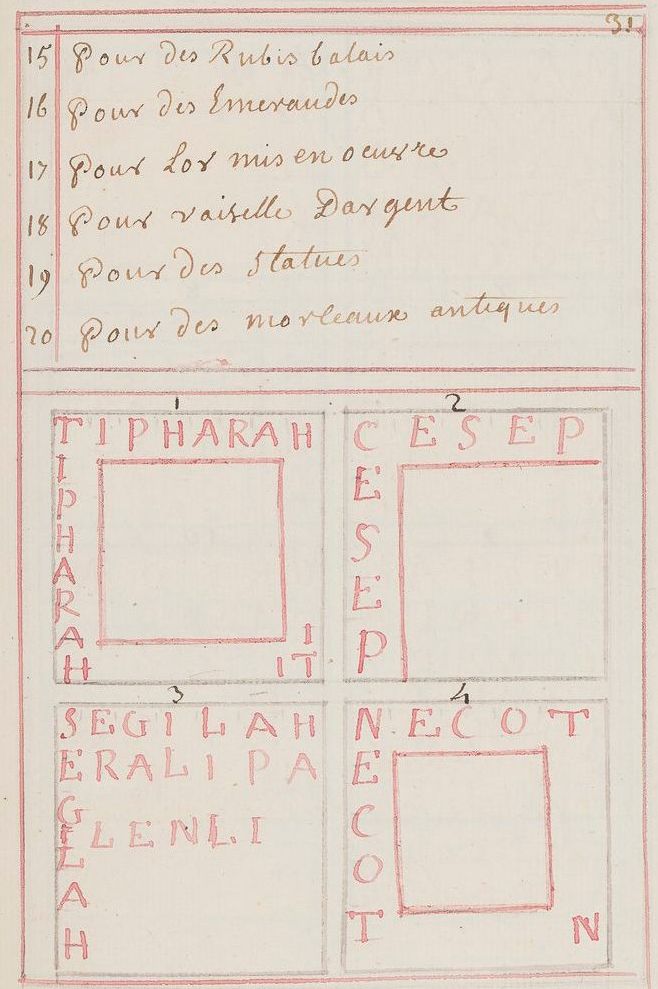 31.
15 Pour des Rubis balais
16 Pour des Emeraudes
17 Pour Lor mis en oeuvre
18 Pour vaiselle Dargent
19 Pour des Statues
20 Pour des morceaux antiques
1
TIPHARAH
I
P
H
A
R
A I
H IT
2
CESEP
E
S
E
P
3
SEGILAH
ERALIPA
G
ILENLI
L
A
H
4
NECOT
E
C
O
T N